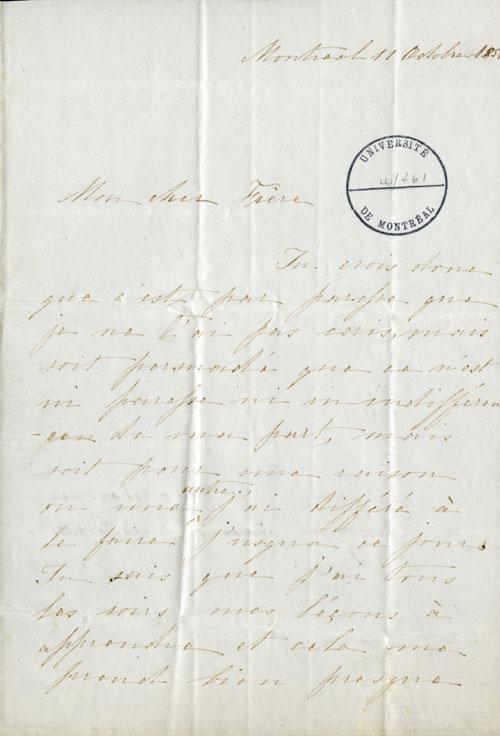 Montreal 11 Octobre 185
UNIVERSITÉ
III/461
DE MONTRÉAL
Mon cher Frère
Tu crois donc
que c'est par paresse que
je ne t'ai pas écris, mais
soit persuadé que ce n'est
ni paresse ni in indifféren
de ma part, mais
soit pour une raison
ou une autre, j'ai différé à
le faire jusqua ce jour.
Tu sais que j'ai tous
les soirs mes leçons à
apprendre et cela me
prend bien presque